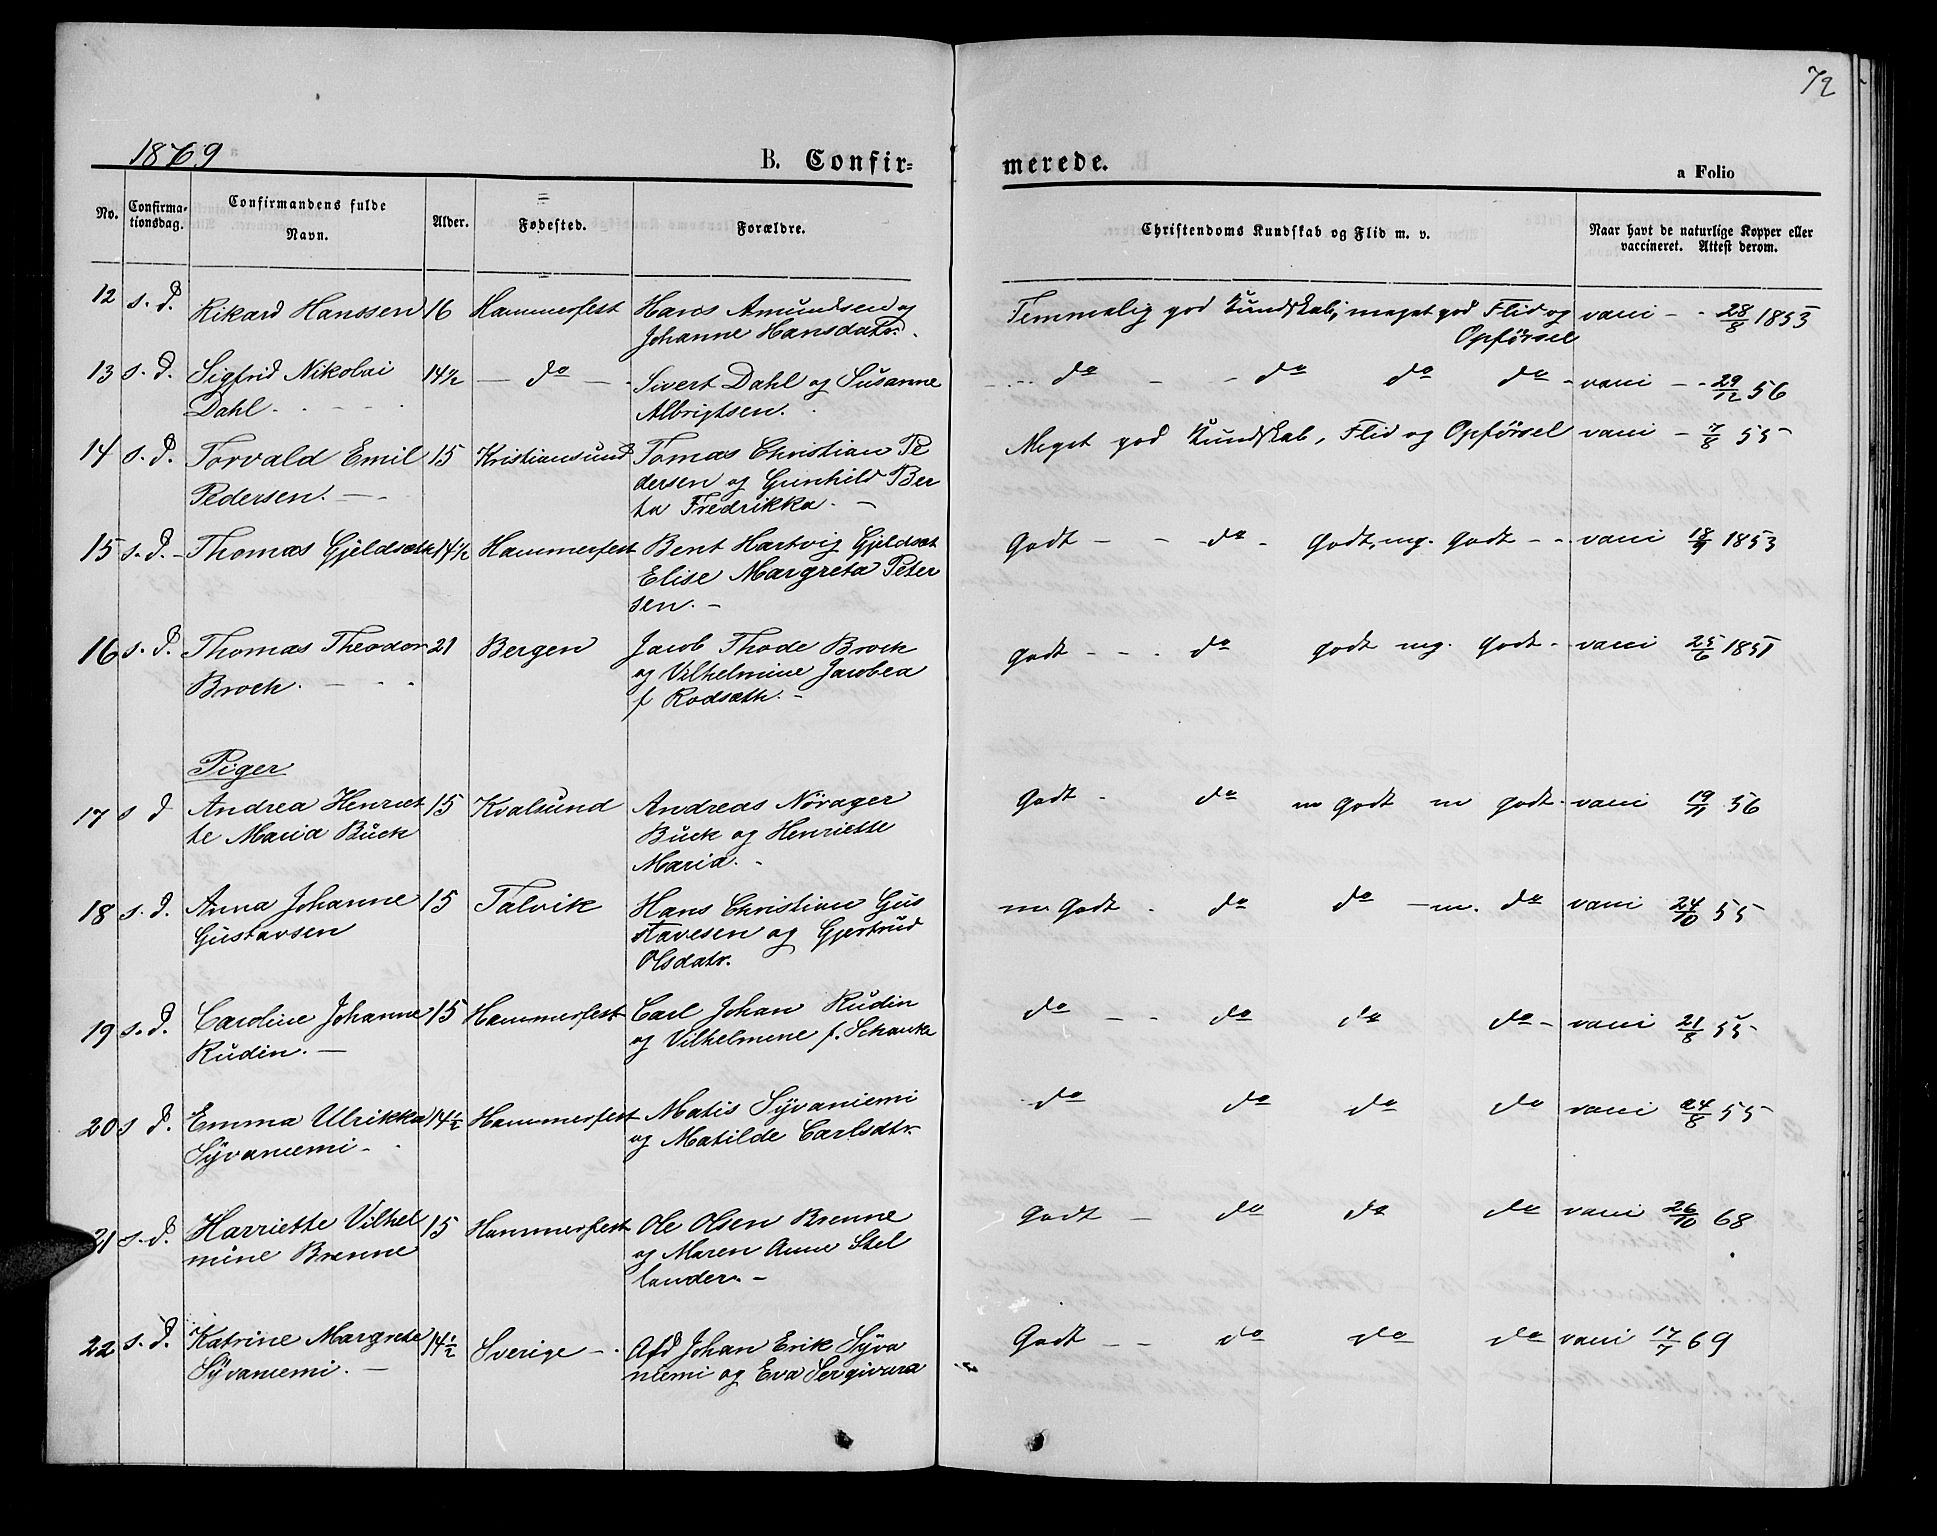 72
1869
B. Confir=
merede.
a Folio
No.
Confirma-
tionsdag.
Confirmandens fulde
Navn.
Alder.
Fødested.
Forældre.
Christendoms Kundskab og Flid m. v.
Naar havt de naturlige Kopper eller
vaccineret. Attest derom.
12 s. d. Rikard Hanssen 16 Hammerfest Hans Amundsen og Temmelig god Kundskab, meget god Flid og vacci - - 28/8 1853
Johanne Hansdatr. Opførsel
13 s. d. Sigfrid Nikolai 14½ - do - Sivert Dahl og Susanne do - - do do do - vacci - - 29/12 56
Dahl. Albrigtsen.
14 s. d. Torvald Emil 15 Kristiansund Tomas Christian Pe Meget god Kundskab, Flid og Opførsel vacci - 7/8 55
Pedersen. - dersen og Gunhild Ber
ta Fredrikka. -
15 s. d. - Thomas Gjeldseth 14½ Hammerfest Bent Hartvig Gjeldset Godt - - do - Godt, mg. Godt - - vacci 18/9 1853
Elise Margreta Peter
sen. -
16 s. d. Thomas Theodor 21 Bergen Jacob Thode Brock godt - - - do godt mg. godt - vacci 25/6 1851
Brock. - og Vilhelmine Jacobea
f Rodsæth. -
Piger
17 s d Andrea Henriet 15 Kvalsund Andreas Nørager Godt - do m godt m godt - vacci 19/9 56
te Maria Buck Buck og Henriette
Maria. -
18 s. d. Anna Johanne 15 Talvik Hans Christian Gus m Godt - do do - m. do vacci 24/10 55
Gustavsen stavesen og Gjertrud
Olsdatr.
19 s. d. Caroline Johanne 15 Hammerfest Carl Johan Rudin do - - do do do - vacci 21/8 55
Rudin. - og Vilhelmene f. Schanka
20 s d. Emma Ulrikka 14½ Hammerfest Matis Syvaniemi do do do do vacci 24/8 55
Syvaniemi - og Matilde Carlsdtr.
21 s. d. Harriette Vilhel 15 Hammerfest Ole Olsen Brenne Godt - do do do vacci 26/10 68
mine Brenne og Maren Anne Stel
lander. -
22 s. d. Katrine Margrete 14½ Sverige - Afd Johan Erik Syva Godt - - do do do vacci 17/7 69
Syvaniemi. - niemi og Eva